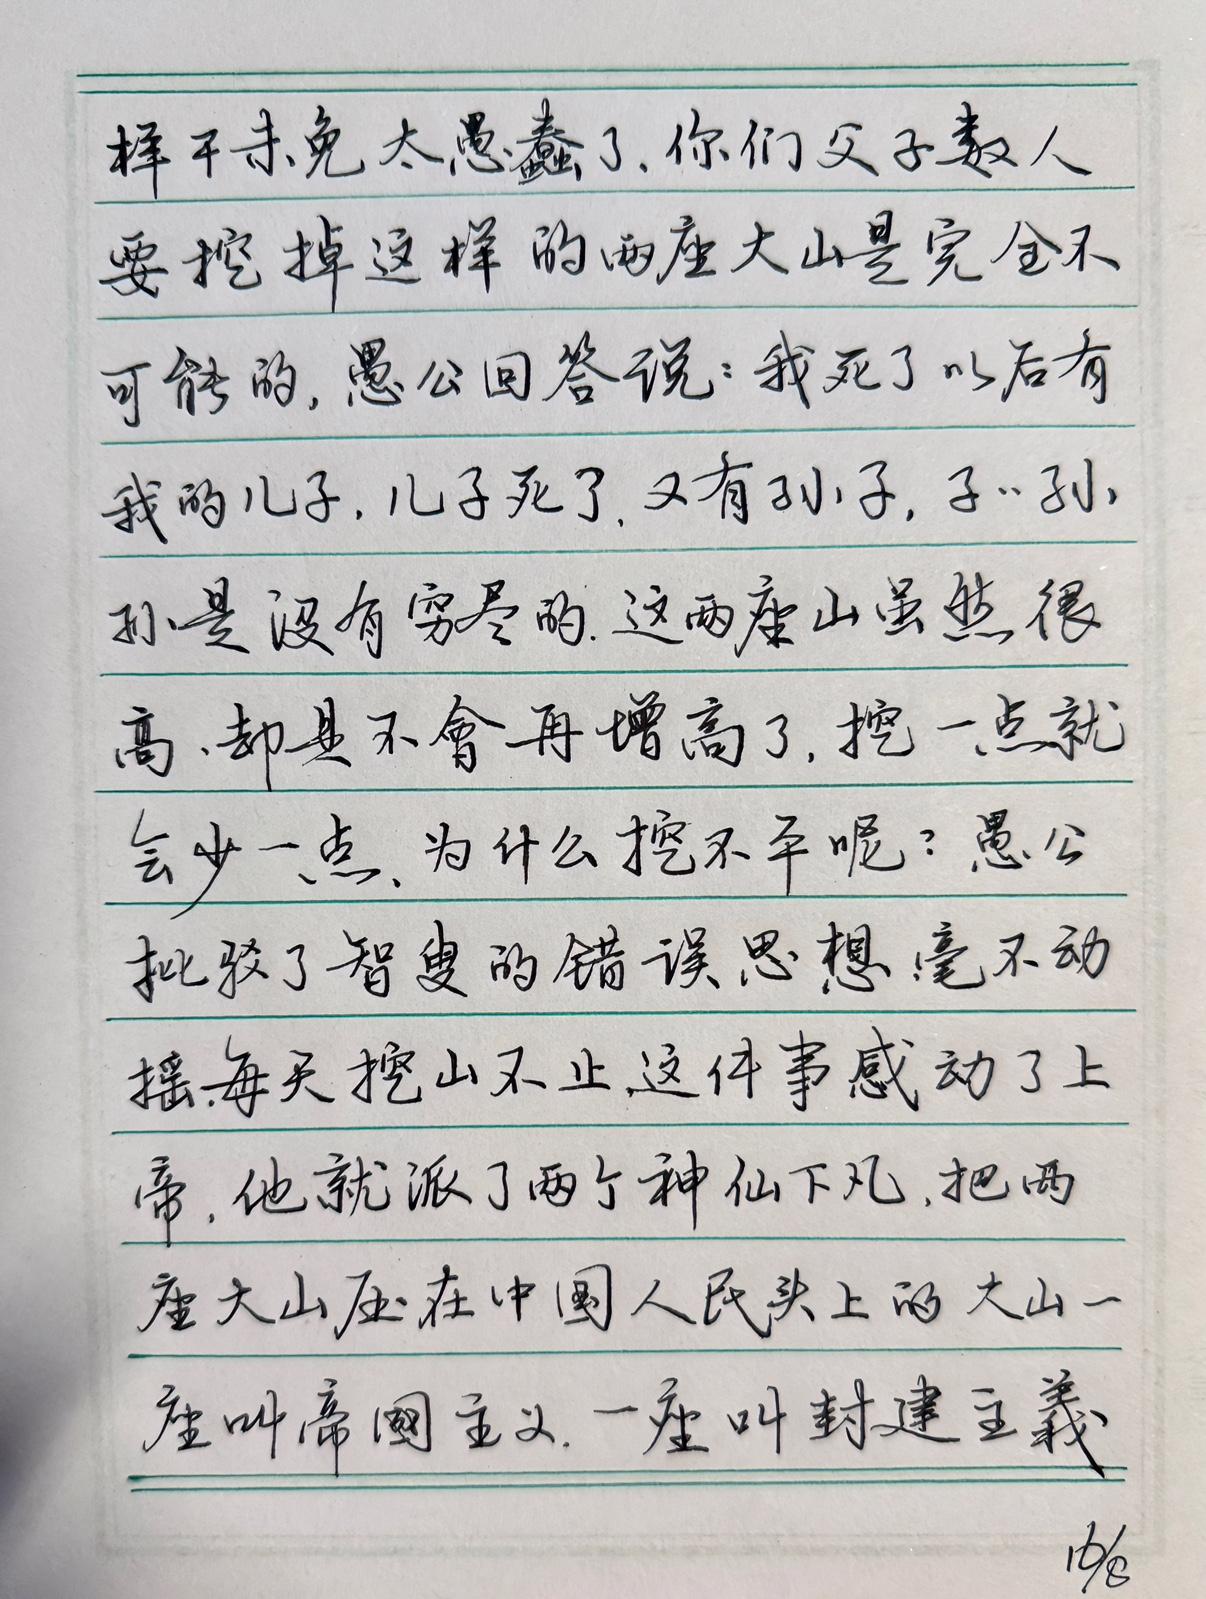 样干未免太愚蠢了，你们父子数人
要挖掉这样的两座大山是完全不
可能的，愚公回答说：我死了以后有
我的儿子，儿子死了，又有孙子，子〃孙
孙是没有穷尽的．这两座山虽然很
高、却是不會再增高了，挖一点就
会少一点、为什么挖不平呢？愚公
批驳了智叟的错误思想毫不动
摇．每天挖山不止．这件事感动了上
帝，他就派了两个神仙下凡，把两
座大山压在中国人民头上的大山一
座叫帝國主义．一座叫封建主義
16/8